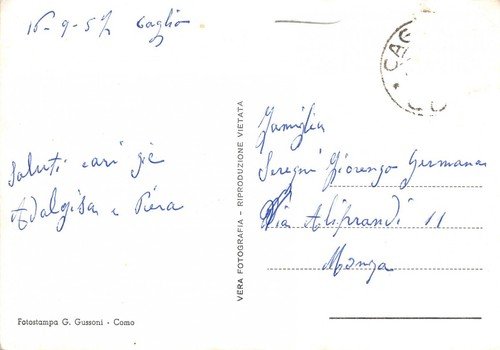 16-9-57 Caglio
Saluti cari
Adalgisa e Piera
Fotostampa G. Gussoni - Como
VERA FOTOGRAFIA - RIPRODUZIONE VIETATA
CAG
CO
Famiglia
Seregni Giorengo Germana
Via Aliprandi 11
Monza